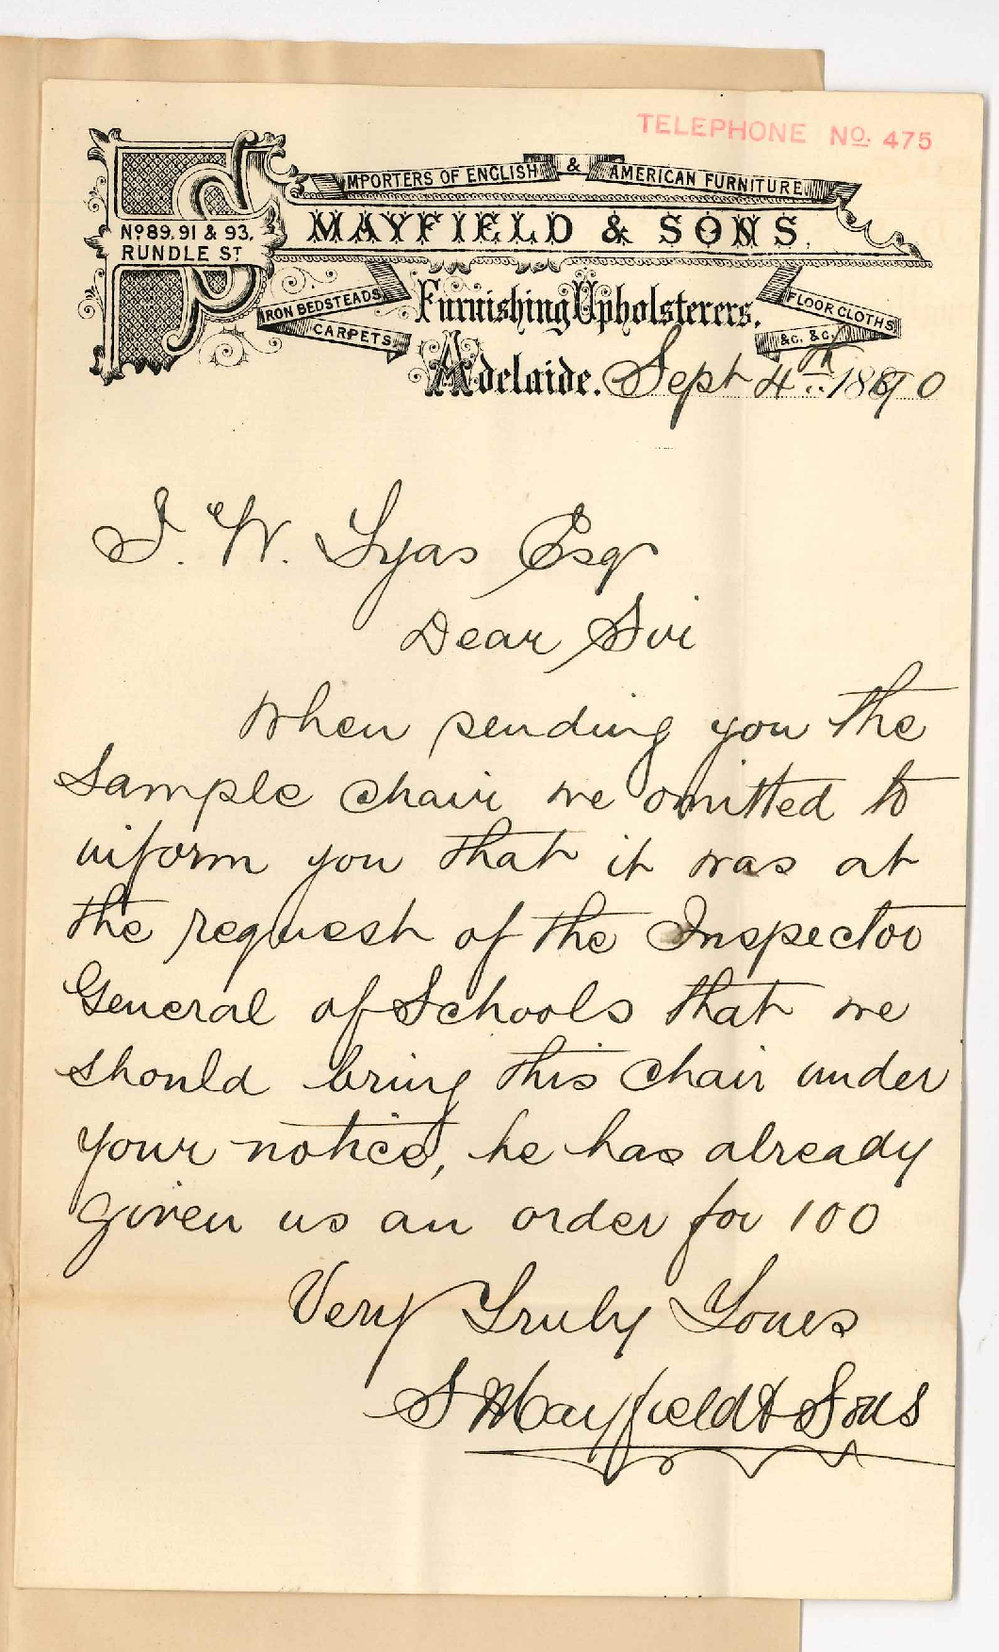 TELEPHONE No. 475
IMPORTERS OF ENGLISH & AMERICAN FURNITURE
No 89, 91 & 93,
RUNDLE ST
MAYFIELD & SONS.
IRON BEDSTEADS
CARPETS
Furnishing Upholsterers.
FLOOR CLOTHS
&c. &c.
Adelaide. Sept 4th 1890
J. W. Lyas Esqr
Dear Sir
When sending you the
Sample chair we omitted to
inform you that it was at
the request of the Inspector
General of Schools that we
should bring this chair under
your notice, he has already
given us an order for 100
Very Truly Yours
S Mayfield & Sons